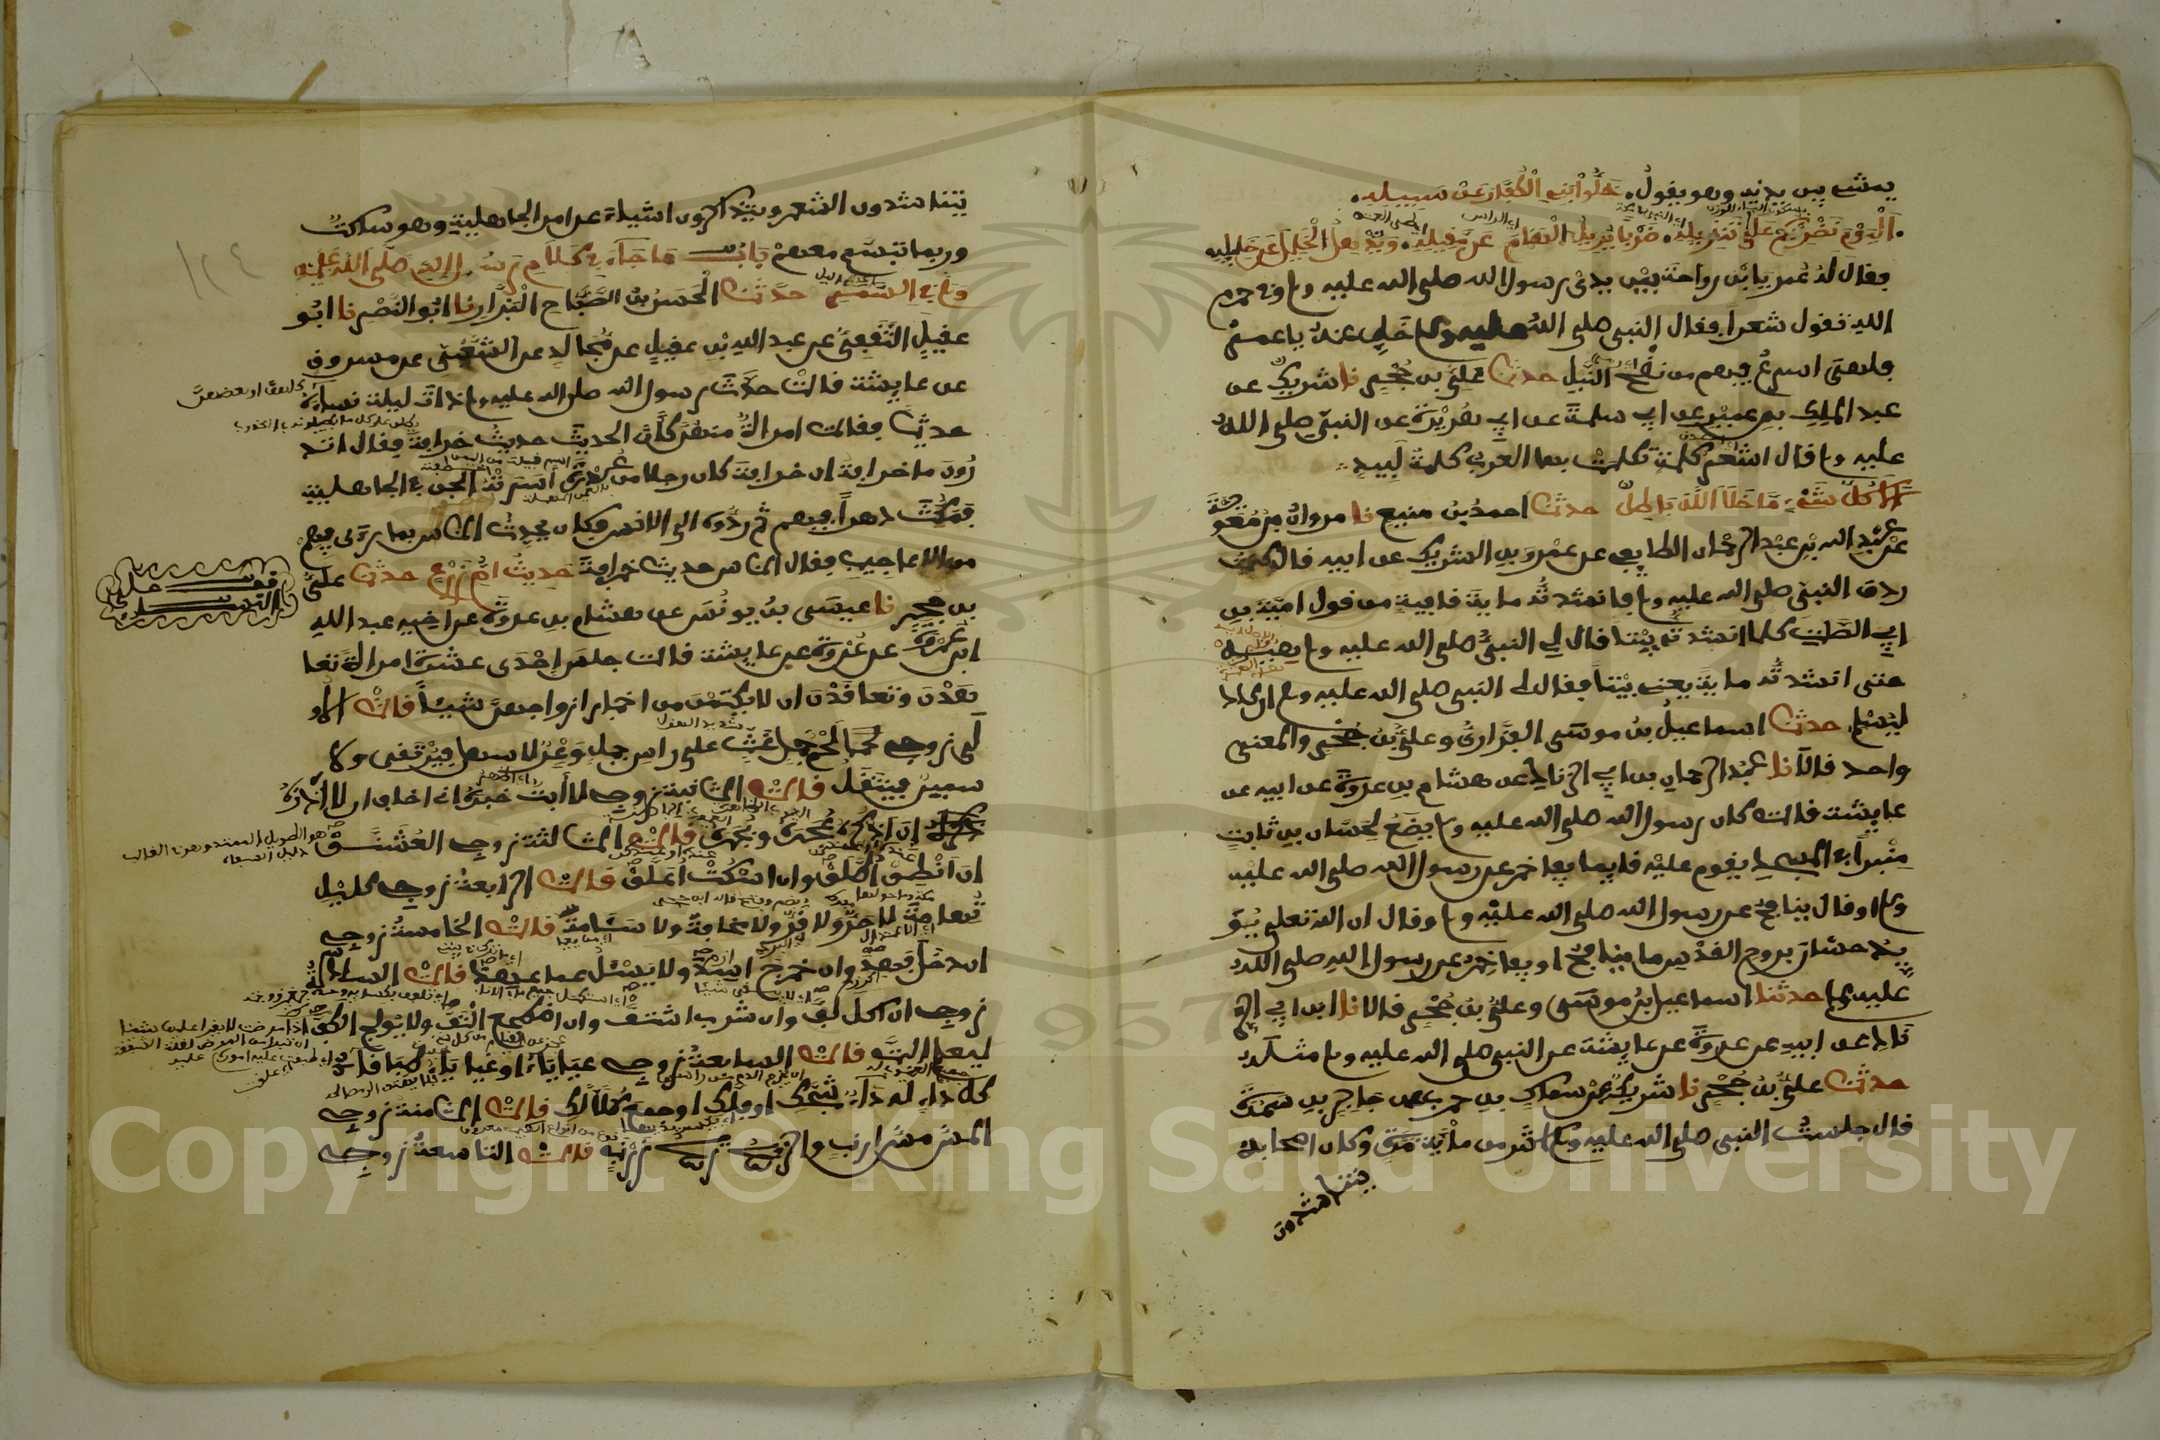 يمشي بين يديه وهو يقول خلوا بني الكفار عن سبيله
اليوم نضربكم على تنزيله ضربا يزيل الهام عن مقيله ويذهل الخليل عن خليله
فقال له عمر يا بن رواحة بين يدي رسول الله صلى الله عليه وسلم وفي حرم
الله تقول شعرا فقال النبي صلى الله عليه وسلم خل عنه يا عمر
فلهي اسرع فيهم من نضح النبل حدثنا علي بن حجر نا شريك عن
عبد الملك بن عمير عن ابي سلمة عن ابي هريرة عن النبي صلى الله
عليه وسلم قال اشعر كلمة تكلمت بها العرب كلمة لبيد
الا كل شيء ما خلا الله باطل حدثنا احمد بن منيع نا مروان بن معوية
عن عبد الله بن عبد الرحمان الطايفي عن عمرو بن الشريد عن ابيه قال كنت
ردف النبي صلى الله عليه وسلم فانشدته ماية قافية من قول امية بن
ابي الصلت كلما انشدته بيتا قال لي النبي صلى الله عليه وسلم هيه
حتى انشدته ماية يعني بيتا فقال النبي صلى الله عليه وسلم ان كاد
ليسلم حدثنا اسماعيل بن موسى الفزاري وعلي بن حجر والمعنى
واحد قالا نا عبد الرحمان بن ابي الزناد عن هشام بن عروة عن ابيه عن
عايشة قالت كان رسول الله صلى الله عليه وسلم يضع لحسان بن ثابت
منبرا في المسجد يقوم عليه قايما يفاخر عن رسول الله صلى الله عليه
وسلم او قال ينافح عن رسول الله صلى الله عليه وسلم وقال ان الله تعلى يؤ
يد حسان بروح القدس ما ينافح او يفاخر عن رسول الله صلى الله
عليه وسلم حدثنا اسماعيل بن موسى وعلي بن حجر قالا نا ابن ابي الز
ناد عن ابيه عن عروة عن عايشة عن النبي صلى الله عليه وسلم مثله
حدثنا علي بن حجر نا شريك عن سماك بن حرب عن جابر بن سمرة
قال جلست النبي صلى الله عليه وسلم اكثر من ماية مرة وكان اصحابه
يتناشدون
يتناشدون الشعر ويتذاكرون اشياء من امر الجاهلية وهو ساكت
وربما تبسم معهم باب ما جاء في كلام رسول الله صلى الله عليه
وسلم في السمر حدثنا الحسن بن الصباح البزار نا ابو النضر نا ابو
عقيل الثقفي عن عبد الله بن عقيل عن مجالد عن الشعبي عن مسروق
عن عايشة قالت حدث رسول الله صلى الله عليه وسلم ذات ليلة نساءه
حديثا فقالت امراة منهن كان الحديث حديث خرافة فقال اتد
رون ما خرافة ان خرافة كان رجلا من عذرة اسرته الجن في الجاهلية
فمكث دهرا فيهم ثم ردوه الى الانس فكان يحدث الناس بما راى فيهم
من الاعاجيب فقال الناس حديث خرافة حديث ام زرع حدثنا علي
بن حجر نا عيسى بن يونس عن هشام بن عروة عن اخيه عبد الله
ابن عروة عن عروة عن عايشة قالت جلس احدى عشرة امراة تعا
هدن وتعاقدن ان لا يكتمن من اخبار ازواجهن شيئا قالت الاو
لى زوجي لحم جمل غث على راس جبل وعر لا سهل فيرتقى ولا
سمين فينتقل قالت الثانية زوجي لا ابث خبره اني اخاف ان لا اذره
ان اذكره اذكر عجره وبجره قالت الثالثة زوجي العشنق
ان انطق اطلق وان اسكت اعلق قالت الرابعة زوجي كليل
تهامة لا حر ولا قر ولا مخافة ولا سئامة قالت الخامسة زوجي
ان دخل فهد وان خرج اسد ولا يسئل عما عهد قالت السادسة
زوجي ان اكل لف وان شرب اشتف وان اضطجع التف ولا يولج الكف
ليعلم البث قالت السابعة زوجي عياياء او غياياء طباقاء
كل داء له داء شجك او فلك او جمع كلا لك قالت الثامنة زوجي
المس مس ارنب والريح ريح زرنب قالت التاسعة زوجي
كلهن او بعضهن
Copyright © King Saud University
1957